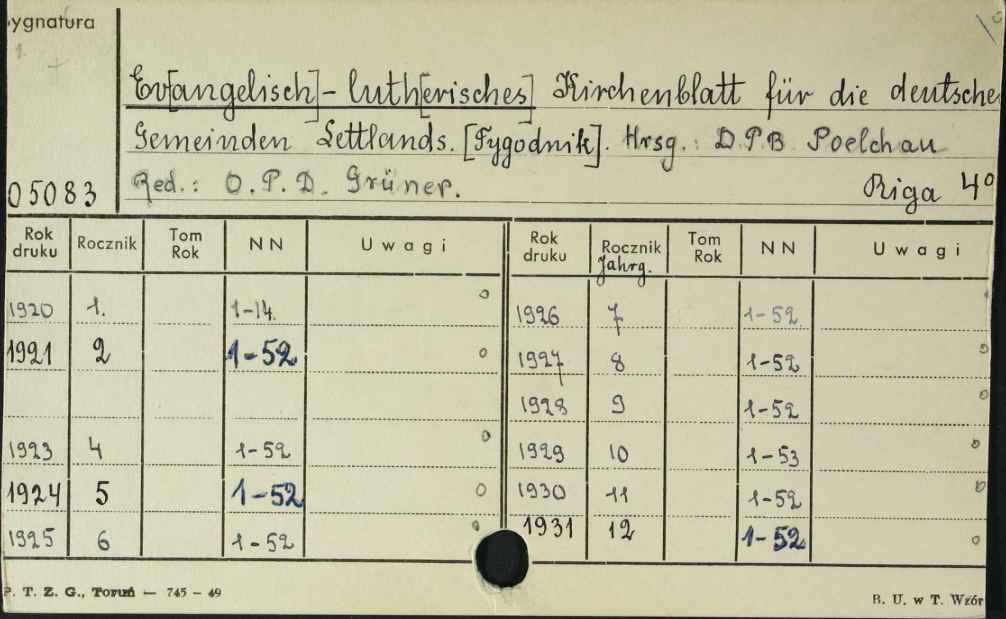 ygnatura
05083
Ev[angelisch]-luth[erisches] Kirchenblatt für die deutsche
Gemeinden Lettlands. [Tygodnik]. Hrsg.: D.P.B. Poelchau
Red.: O.P.D. Grüner. Riga 4°
Rok druku Rocznik Tom Rok NN Uwagi Rok druku Rocznik Jahrg. Tom Rok NN Uwagi
1920 1. 1-14. o 1926 7 1-52
1921 2 1-52 o 1927 8 1-52 o
1928 9 1-52 o
1923 4 1-52 o 1929 10 1-53 o
1924 5 1-52 o 1930 11 1-52 o
1925 6 1-52 o 1931 12 1-52 o
P. T. Z. G., Toruń — 745 - 49 B. U. w T. Wzór